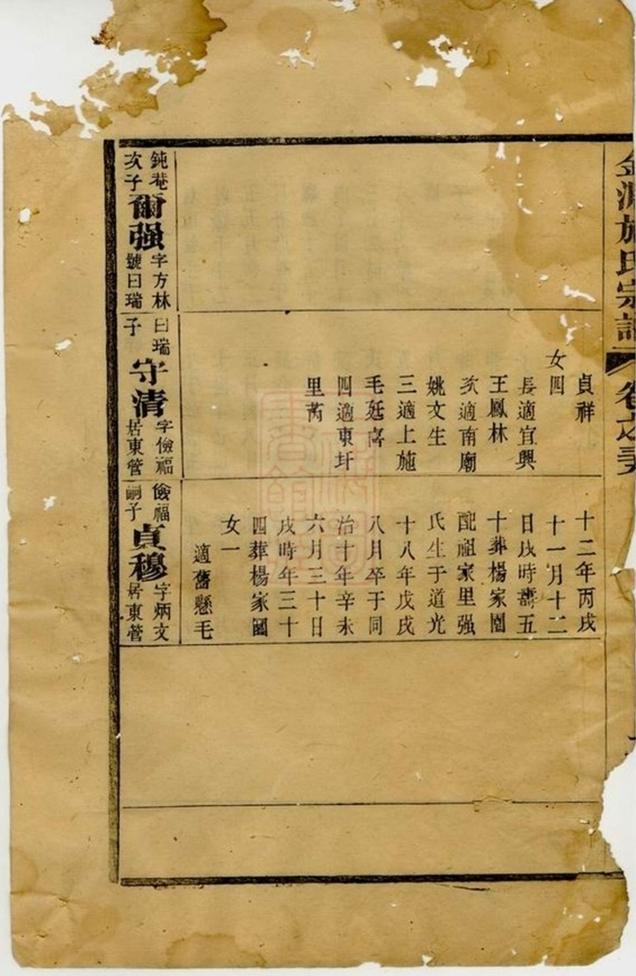 金淵施氏宗譜
卷之
貞祥
女四
長適宜興
王鳳林
次適南廟
姚文生
三適上施
毛廷高
四適東圩
里芮
十二年丙戌
十一月十二
日戌時壽五
十葬楊家園
配祖家里强
氏生于道光
十八年戊戌
八月卒于同
治十年辛未
六月三十日
戌時年三十
四葬楊家園
女一
適舊懸毛
鈍菴
次子
爾强
字方林
號曰瑞
曰瑞
子
守清
字儉福
居東管
儉福
嗣子
貞穆
字炳文
居東管